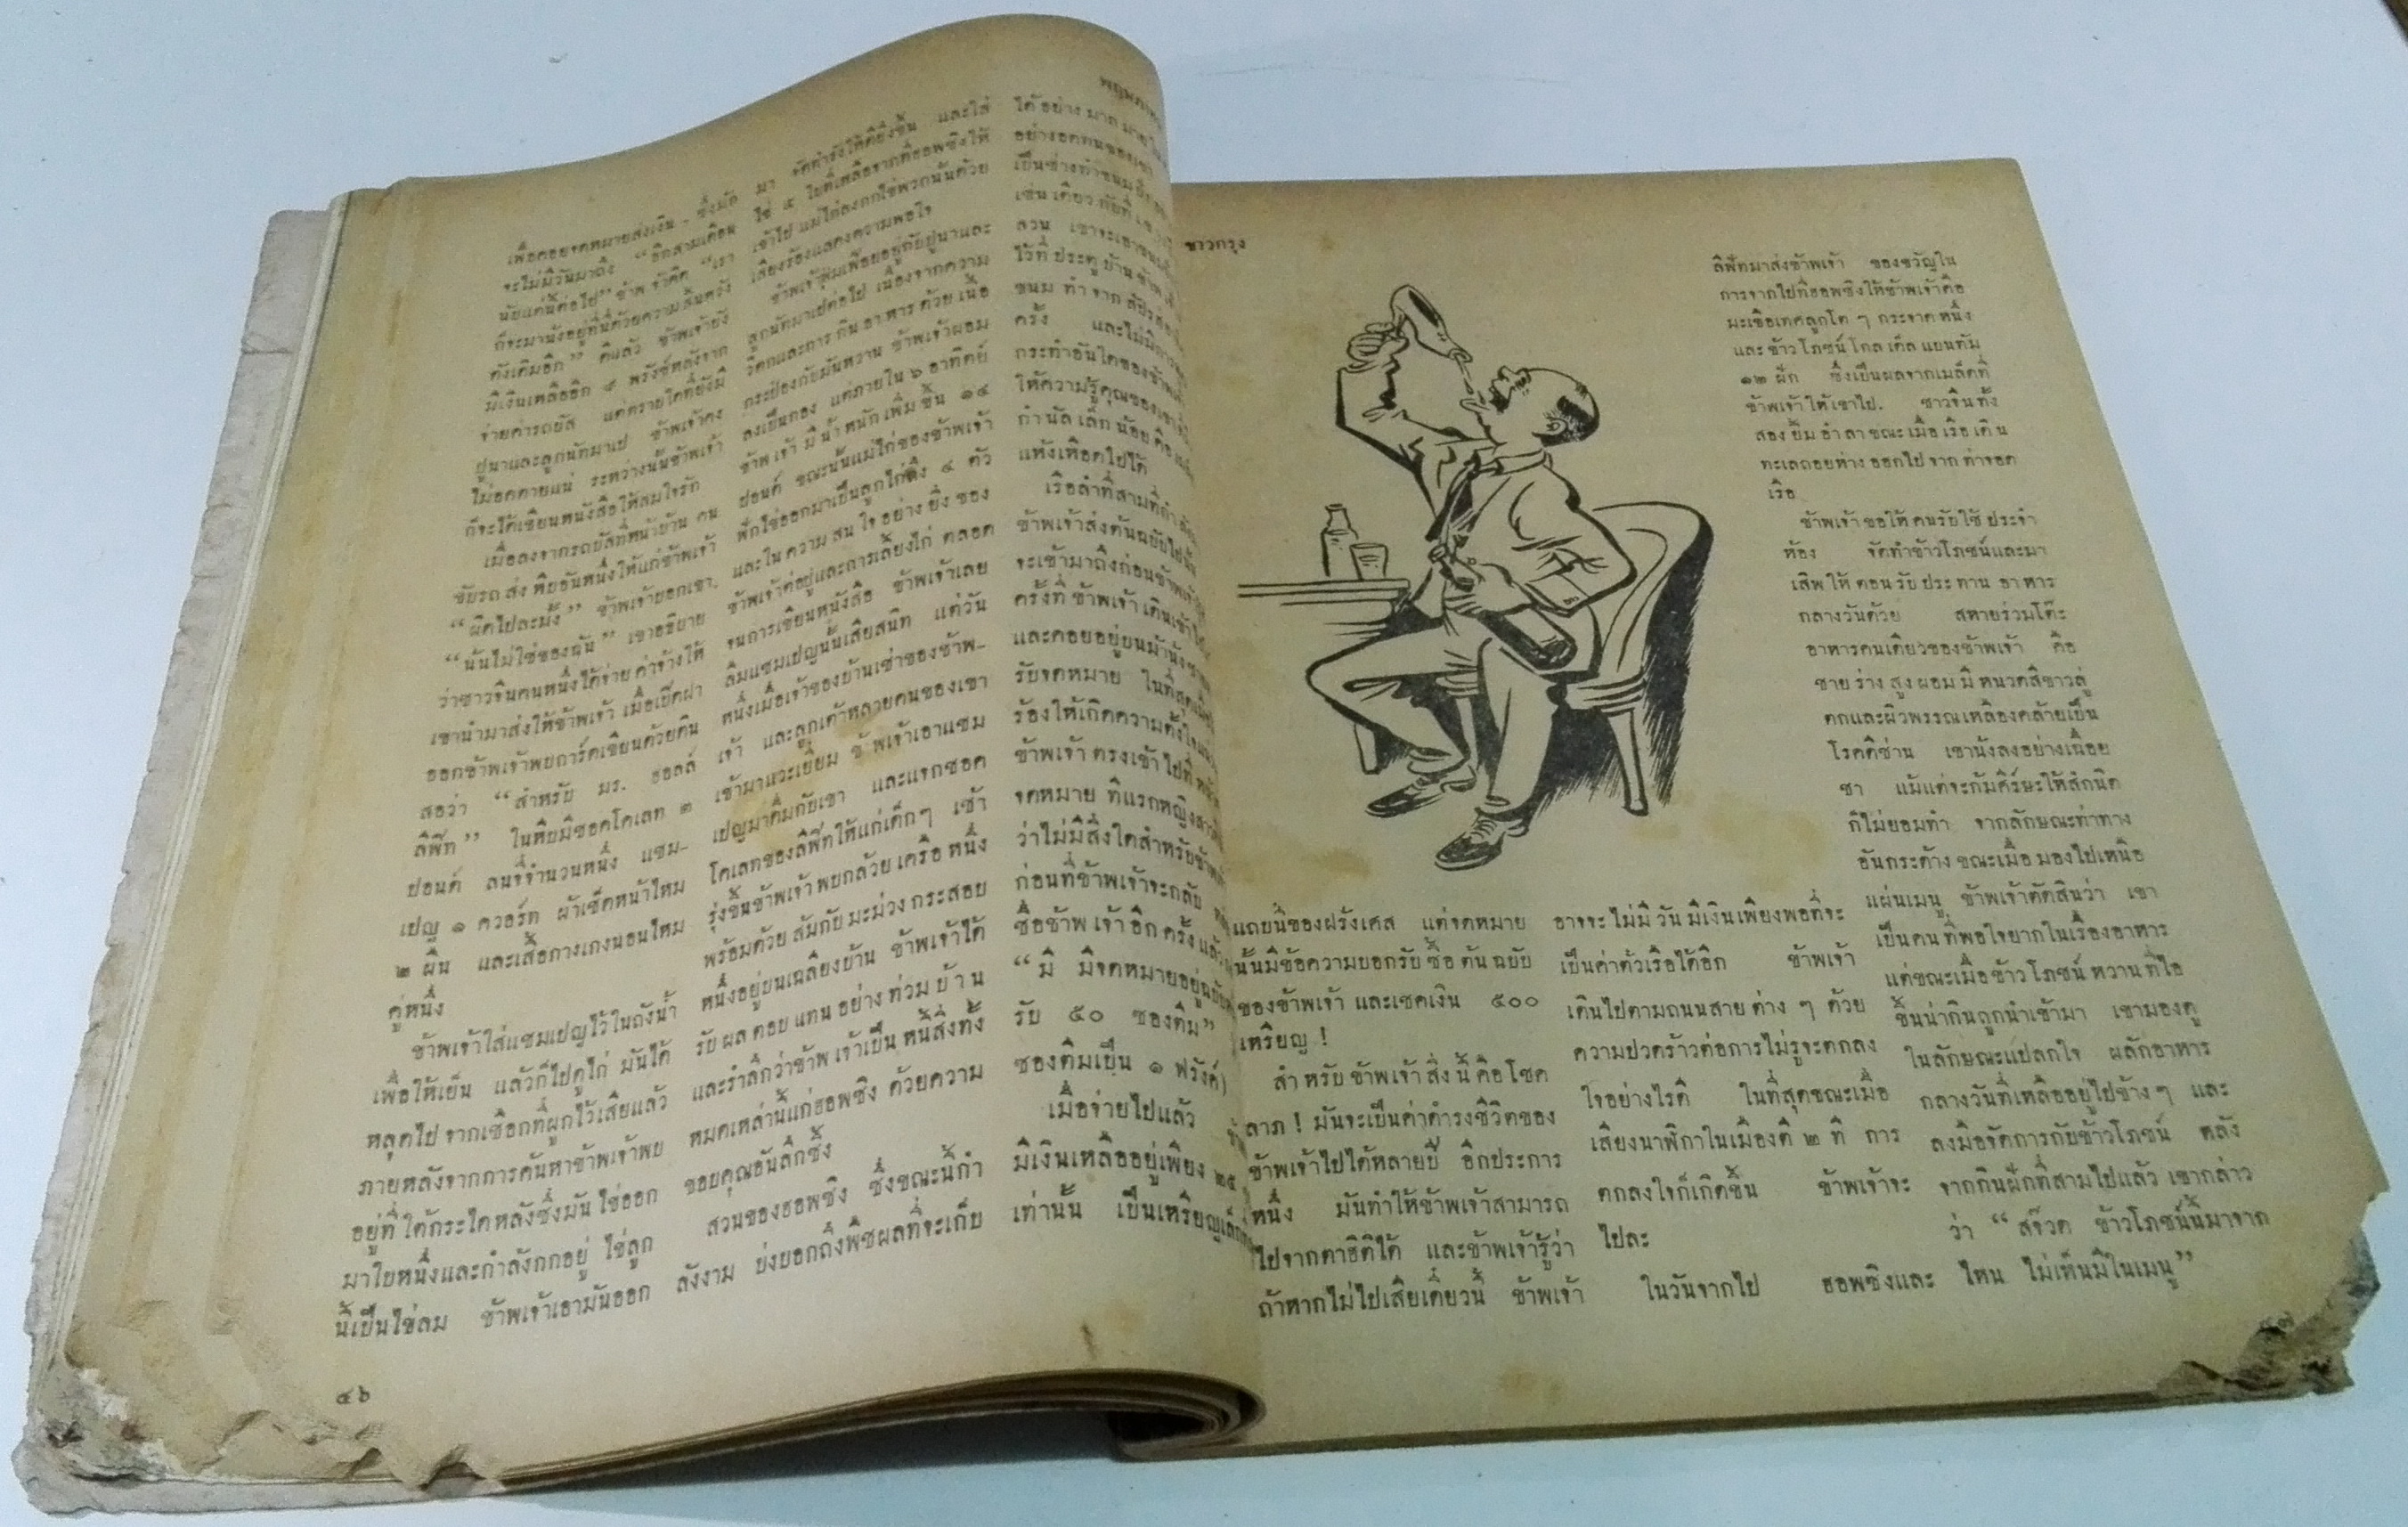 เพื่อคอยจดหมายส่งเงิน - ซึ่งมัก
จะไม่มีวันมาถึง “อีกสามเดือน
นับแต่นี้ต่อไป” ข้าพเจ้าคิด “เรา
ก็จะมานั่งอยู่ที่นี่ด้วยความสิ้นหวัง
ดังเดิมอีก” ดีแล้ว ข้าพเจ้ายัง
มีเงินเหลืออีก ๔ ฟรังซ์หลังจาก
จ่ายค่ารถบัส แต่ตราบใดที่ยังมี
ปูนาและลูกนัทมาเป ข้าพเจ้าคง
ไม่อดตายแน่ ระหว่างนั้นข้าพเจ้า
ก็จะได้เขียนหนังสือให้สมใจรัก
เมื่อลงจากรถบัสที่หน้าบ้าน คน
ขับรถ ส่ง หีบอันหนึ่งให้แก่ข้าพเจ้า
“ผิดไปละมั้ง” ข้าพเจ้าบอกเขา.
“นั่นไม่ใช่ของฉัน” เขาอธิบาย
ว่าชาวจีนคนหนึ่งได้จ่าย ค่าจ้างให้
เขานำมาส่งให้ข้าพเจ้า เมื่อเปิดฝา
ออกข้าพเจ้าพบการ์ดเขียนด้วยดิน
สอว่า “สำหรับ มร. ฮอลล์
ลิฟัท” ในหีบมีชอคโคเลท ๑
ปอนด์ ลนจี่จำนวนหนึ่ง แชม-
เปญ ๑ ควอร์ท ผ้าเช็ดหน้าไหม
๒ ผืน และเสื้อกางเกงนอนไหม
คู่หนึ่ง
ข้าพเจ้าใส่แชมเปญไว้ในถังน้ำ
เพื่อให้เย็น แล้วก็ไปดูไก่ มันได้
หลุดไป จากเชือกที่ผูกไว้เสียแล้ว
ภายหลังจากการค้นหาข้าพเจ้าพบ
อยู่ที่ ใต้กระไดหลังซึ่งมัน ไข่ออก
มาใบหนึ่งและกำลังกกอยู่ ไข่ลูก
นี้เป็นไข่ลม ข้าพเจ้าเอามันออก
๕๖
มา จัดทำรังให้ดียิ่งขึ้น และใส่
ไข่ ๕ ใบที่เหลือจากที่ฮอพซิงให้
เข้าไป แม่ไก่ลงกกไข่พวกนั้นด้วย
เสียงร้องแสดงความพอใจ
ข้าพเจ้าดื่มเพื่อยอยู่กับปูนาและ
ลูกนัทมาเปต่อไป เนื่องจากความ
วิตกและการ กิน อาหาร ด้วย เนื้อ
กระป๋องกับมันหวาน ข้าพเจ้าผอม
ลงเป็นกอง แต่ภายใน ๖ อาทิตย์
ข้าพเจ้า มี น้ำ หนัก เพิ่ม ขึ้น ๑๔
ปอนด์ ขณะนั้นแม่ไก่ของข้าพเจ้า
ฟักไข่ออกมาเป็นลูกไก่ตั้ง ๔ ตัว
และใน ความ สน ใจ อย่าง ยิ่ง ของ
ข้าพเจ้าต่อปูและการเลี้ยงไก่ ตลอด
จนการเขียนหนังสือ ข้าพเจ้าเลย
ลืมแชมเปญนั้นเสียสนิท แต่วัน
หนึ่งเมื่อเจ้าของบ้านเช่าของข้าพ-
เจ้า และลูกเต้าหลายคนของเขา
เข้ามาแวะเยี่ยม ข้าพเจ้าเอาแชม
เปญมาดื่มกับเขา และแจกชอค
โคเลทของลิฟัทให้แก่เด็กๆ เช้า
รุ่งขึ้นข้าพเจ้า พบกล้วย เครือ หนึ่ง
พร้อมด้วย ส้มกับ มะม่วง กระสอบ
หนึ่งอยู่บนเฉลียงบ้าน ข้าพเจ้าได้
รับ ผล ตอบ แทน อย่าง ท่วม บ้า น
และรำลึกว่าข้าพเจ้าเป็น หนี้สิ่งทั้ง
หมดเหล่านี้แก่ฮอพซิง ด้วยความ
ขอบคุณอันลึกซึ้ง
สวนของฮอพซิง ซึ่งขณะนี้กำ
ลังงาม บ่งบอกถึงพืชผลที่จะเก็บ
ได้ อย่าง มาก
อย่างอดทนของเขา
เป็นช่างทำขนม
เช่น เดียว กับที่
สวน เขาจะเอาขนม
ไว้ที่ ประตู บ้าน ข้าพ
ขนม ทำ จาก สับปะรด
ครั้ง และไม่มีการ
กระทำอันใดของข้าพเจ้า
ให้ความรู้คุณของเขา
กำ นัล เล็ก น้อย คือ
แห้งเหือดไปได้
เรือลำที่สามที่กำลัง
ข้าพเจ้าส่งต้นฉบับไปนั้น
จะเข้ามาถึงก่อนข้าพเจ้า
ครั้งที่ ข้าพเจ้า เดินเข้าไป
และคอยอยู่บนม้านั่ง
รับจดหมาย ในที่สุด
ร้องให้เกิดความตั้งใจ
ข้าพเจ้า ตรงเข้า ไปที่
จดหมาย ทีแรกหญิงสาว
ว่าไม่มีสิ่งใดสำหรับข้าพเจ้า
ก่อนที่ข้าพเจ้าจะกลับ
ชื่อข้าพเจ้า อีก ครั้ง แล้ว
“มี มีจดหมายอยู่ฉบับ
รับ ๕๐ ซองติม”
ซองติมเป็น ๑ ฟรังค์)
เมื่อจ่ายไปแล้ว
มีเงินเหลืออยู่เพียง ๒๕
เท่านั้น เป็นเหรียญเล็ก
ชาวกรุง
แถบนี้ของฝรั่งเศส แต่จดหมาย
นั้นมีข้อความบอกรับ ซื้อ ต้น ฉบับ
ของข้าพเจ้า และเชคเงิน ๕๐๐
เหรียญ !
สำ หรับ ข้าพเจ้า สิ่ง นี้ คือ โชค
ลาภ ! มันจะเป็นค่าดำรงชีวิตของ
ข้าพเจ้าไปได้หลายปี อีกประการ
หนึ่ง มันทำให้ข้าพเจ้าสามารถ
ไปจากตาฮิติได้ และข้าพเจ้ารู้ว่า
ถ้าหากไม่ไปเสียเดี๋ยวนี้ ข้าพเจ้า
อาจจะ ไม่มี วัน มีเงิน เพียงพอที่จะ
เป็นค่าตัวเรือได้อีก ข้าพเจ้า
เดินไปตามถนนสาย ต่าง ๆ ด้วย
ความปวดร้าวต่อการไม่รู้จะตกลง
ใจอย่างไรดี ในที่สุดขณะเมื่อ
เสียงนาฬิกาในเมืองตี ๒ ที การ
ตกลงใจก็เกิดขึ้น ข้าพเจ้าจะ
ไปละ
ในวันจากไป ฮอพซิงและ
ลิฟัทมาส่งข้าพเจ้า ของขวัญใน
การจากไปที่ฮอพซิงให้ข้าพเจ้าคือ
มะเขือเทศลูกโต ๆ กระจาด หนึ่ง
และ ข้าว โภชน์ โกล เด็ล แบนตัม
๑๒ ฝัก ซึ่งเป็นผลจากเมล็ดที่
ข้าพเจ้า ให้ เขาไป. ชาวจีน ทั้ง
สอง ยิ้ม อำ ลา ขณะ เมื่อ เรือ เดิน
ทะเลถอยห่าง ออกไป จาก ท่าจอด
เรือ
ข้าพเจ้า ขอให้ คนรับใช้ ประจำ
ห้อง จัดทำข้าวโภชน์และมา
เสิพ ให้ ตอน รับ ประ ทาน อา หาร
กลางวันด้วย สหายร่วมโต๊ะ
อาหารคนเดียวของข้าพเจ้า คือ
ชาย ร่าง สูง ผอม มี หนวดสีขาวลู่
ตกและผิวพรรณเหลืองคล้ายเป็น
โรคดีซ่าน เขานั่งลงอย่างเฉื่อย
ชา แม้แต่จะก้มศีร์ษะให้สักนิด
ก็ไม่ยอมทำ จากลักษณะท่าทาง
อันกระด้าง ขณะเมื่อ มองไปเหนือ
แผ่นเมนู ข้าพเจ้าตัดสินว่า เขา
เป็นคน ที่พอใจยากในเรื่องอาหาร
แต่ขณะเมื่อ ข้าว โภชน์ หวาน ที่ไอ
ขึ้นน่ากินถูกนำเข้ามา เขามองดู
ในลักษณะแปลกใจ ผลักอาหาร
กลางวันที่เหลืออยู่ไปข้างๆ และ
ลงมือจัดการกับข้าวโภชน์ หลัง
จากกินฝักที่สามไปแล้ว เขากล่าว
ว่า “สจ๊วต ข้าวโภชน์นี้มาจาก
ไหน ไม่เห็นมีในเมนู”